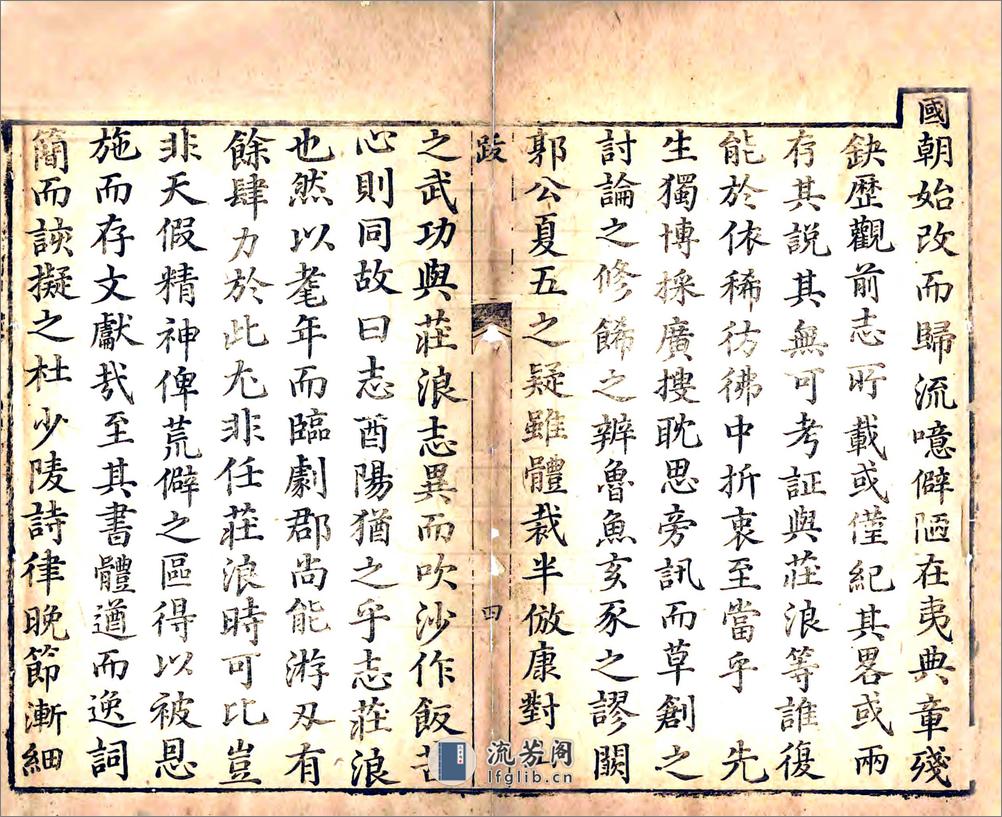 國朝始改而歸流噫僻陋在夷典章殘
缺歷觀前志所載或僅紀其畧或兩
存其說其無可考証與莊浪等誰復
能於依稀彷彿中折衷至當乎 先
生獨博採廣搜眈思旁訊而草創之
討論之修餙之辨魯魚亥豕之謬闕
郭公夏五之疑雖體裁半倣康對
跋 四
之武功與莊浪志異而吹沙作飯苦
心則同故曰志酉陽猶之乎志莊浪
也然以耄年而臨劇郡尚能游刃有
餘肆力於此尤非任莊浪時可比豈
非天假精神俾荒僻之區得以被恩
施而存文獻哉至其書體遒而逸詞
簡而該擬之杜少陵詩律晚節漸細
流芳阁
lfglib.cn